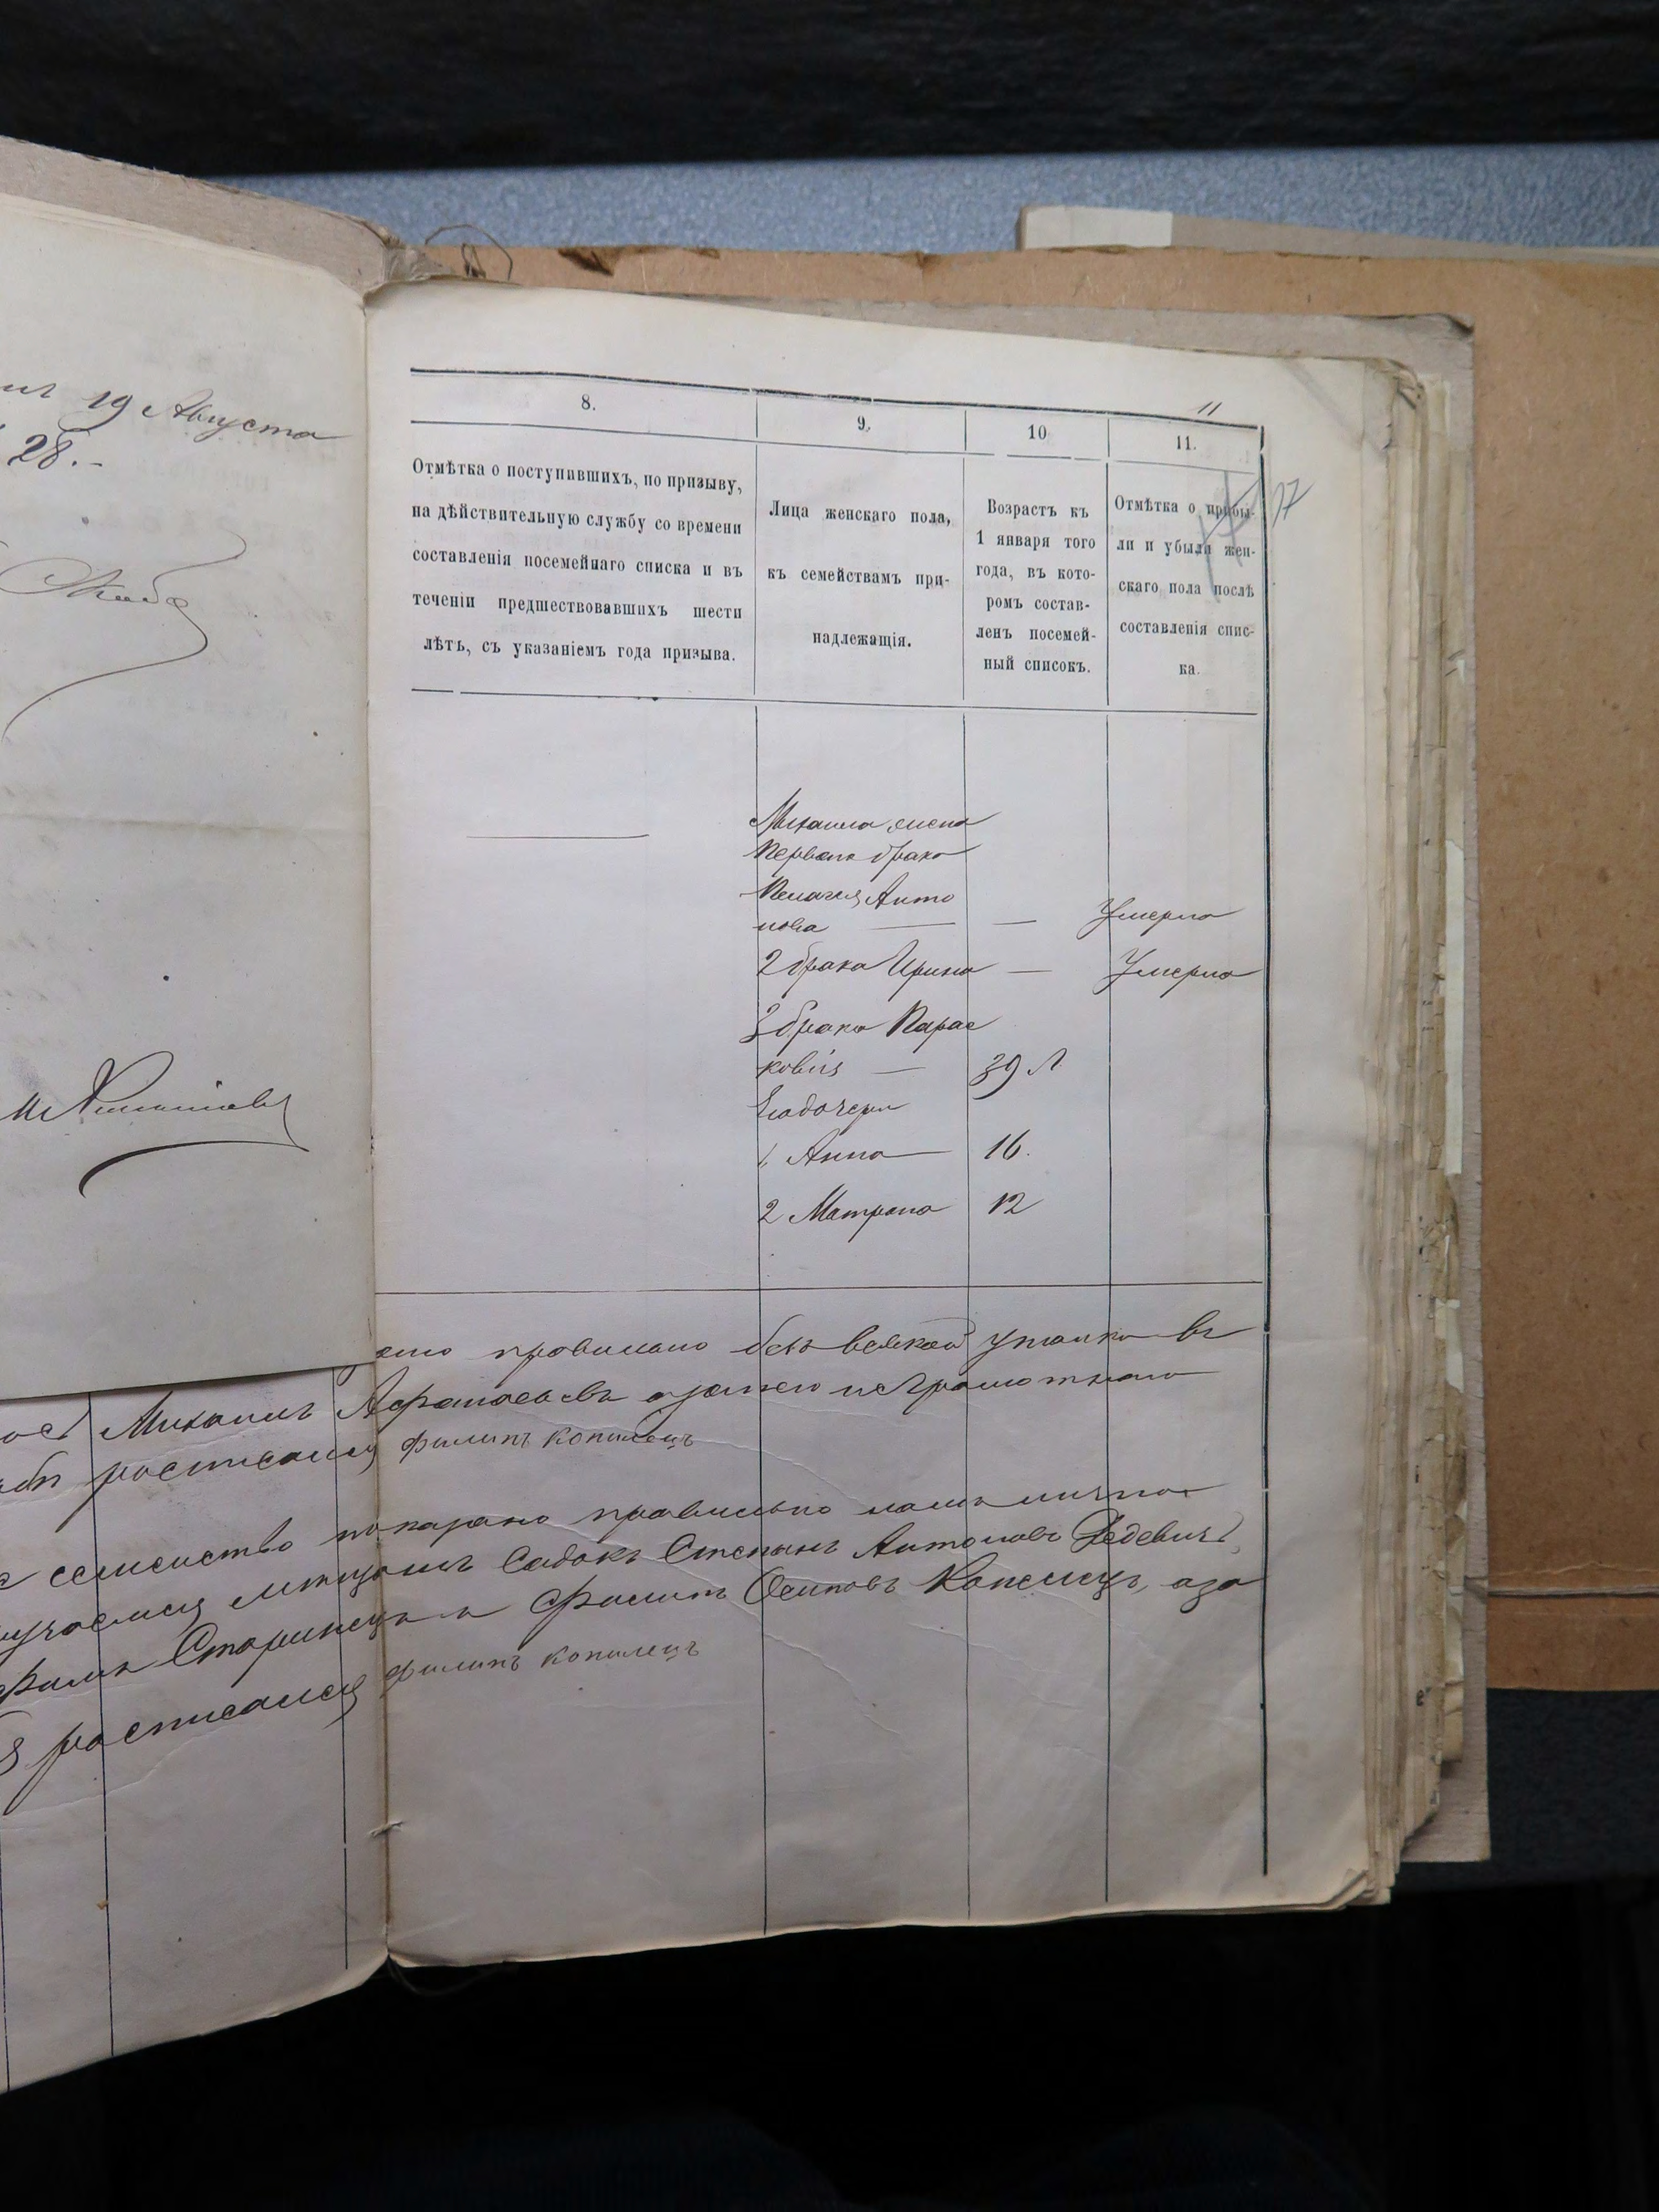 19 Августа
28.-
11
8.
9.
10
11.
17
Отмѣтка о поступившихъ, по призыву,
на дѣйствительную службу со времени
составленія посемейнаго списка и въ
теченіи предшествовавшихъ шести
лѣтъ, съ указаніемъ года призыва.
Лица женскаго пола,
къ семействамъ при-
надлежащія.
Возрастъ къ
1 января того
года, въ кото-
ромъ состав-
ленъ посемей-
ный списокъ.
Отмѣтка о прибы-
ли и убыли жен-
скаго пола послѣ
составленія спис-
ка.
Михаила жена
первого брака
Пелагея Анто
нова — — Умерла
2 брака Ирина — Умерла
3 брака Парас
ковія — 39 л.
Его дочери
1, Анна — 16.
2 Матрона 12
правильно безъ всякой утайки въ
Михаилъ Афанасьевъ а за него неграмотнаго
росписался филипъ копилецъ
семейство показано правильно
мещане Садокъ Степанъ Антоновъ Дедевичъ,
Старинец и Филипъ Осиповъ Копелецъ, а за
росписался филипъ копилецъ